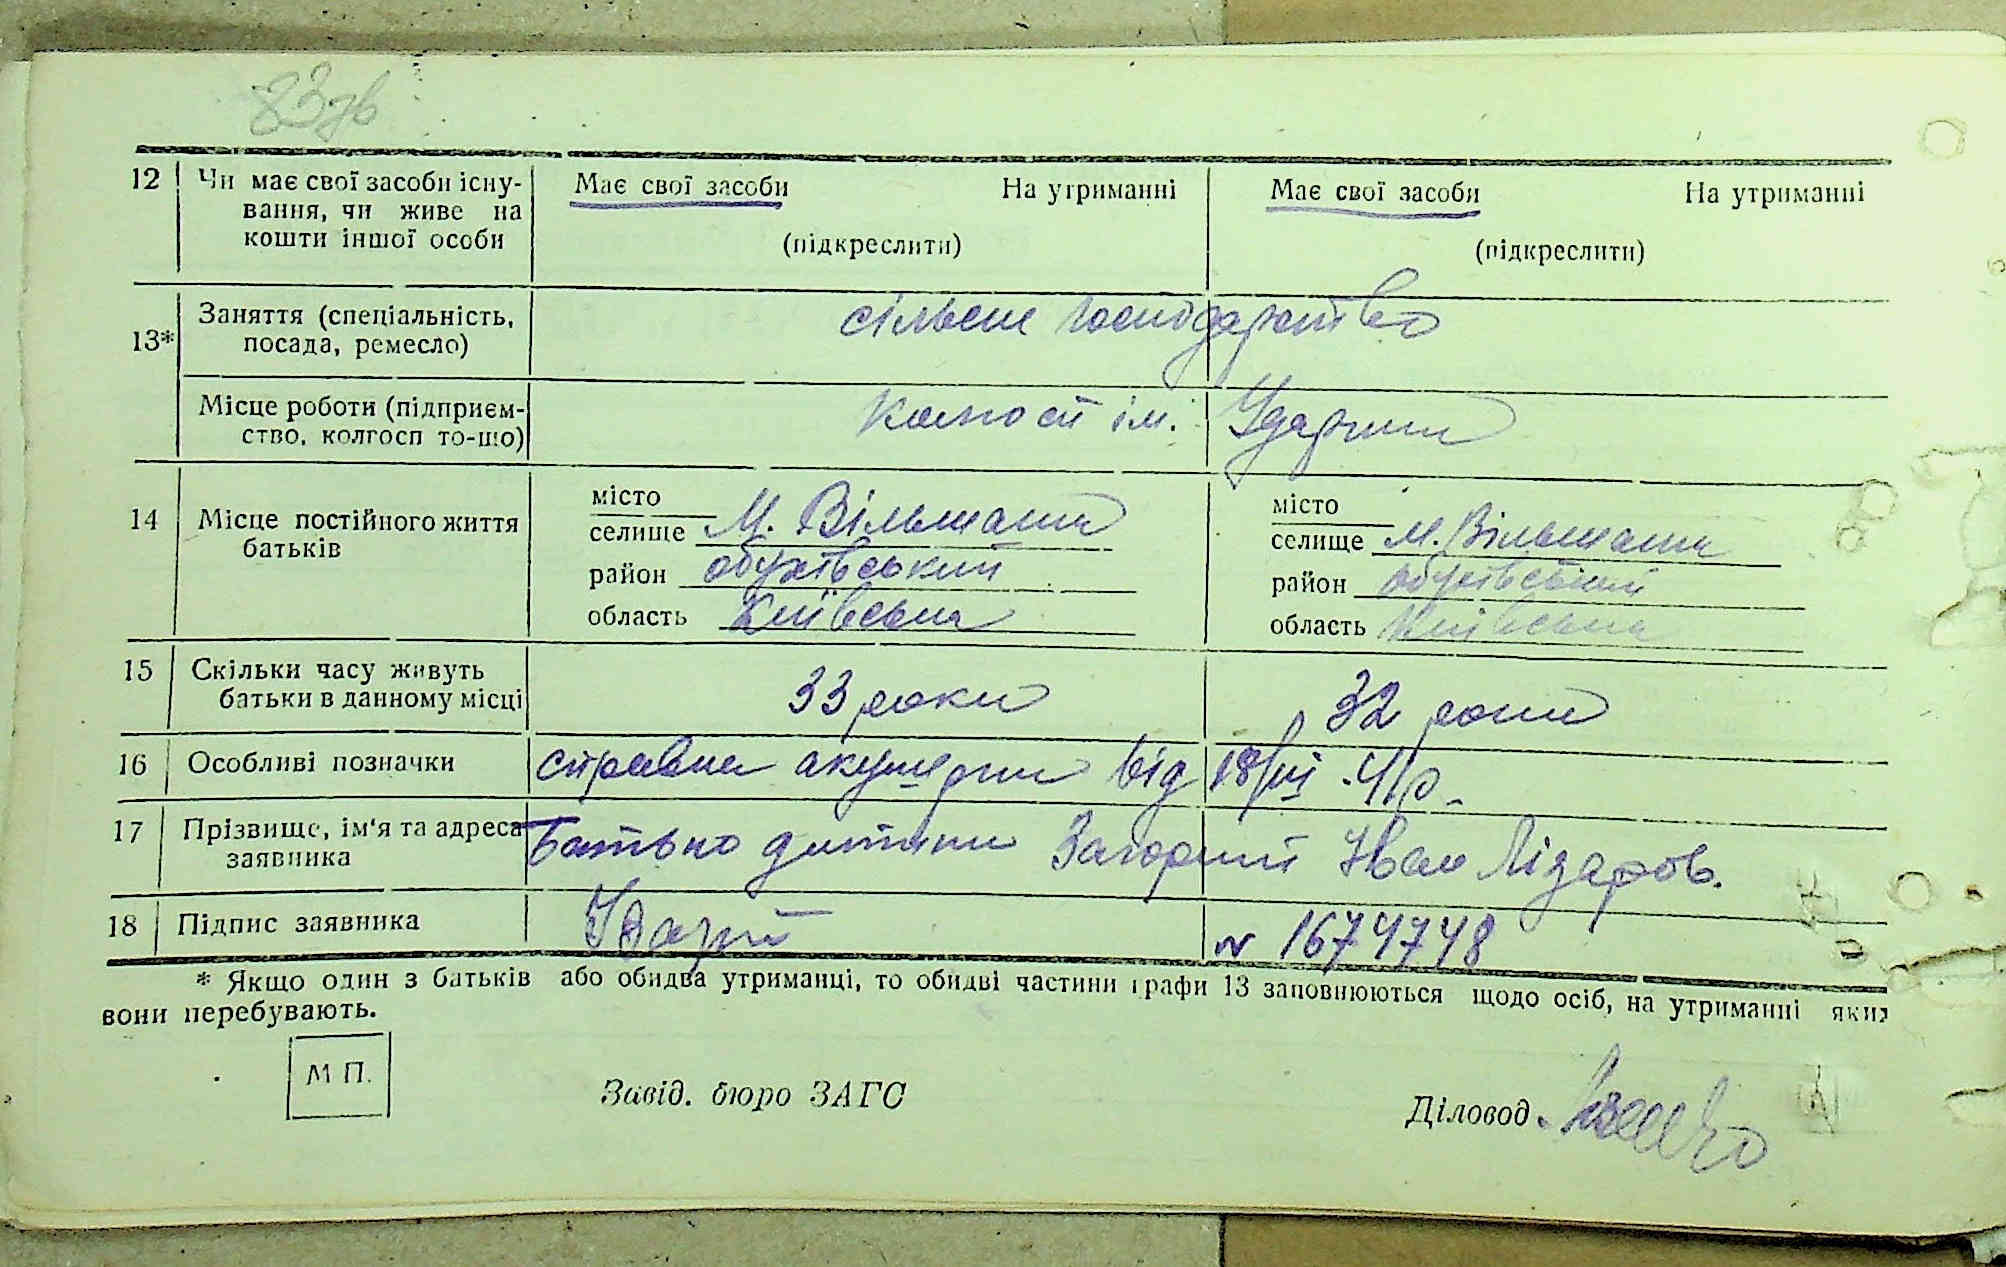 83зв
12 Чи має свої засоби існу- Має свої засоби На утриманні Має свої засоби На утриманні
вання, чи живе на
кошти іншої особи (підкреслити) (підкреслити)
13* Заняття (спеціальність, сільське господарство
посада, ремесло)
Місце роботи (підприєм- Колгосп ім.
ство, колгосп то-що)
14 Місце постійного життя
батьків
місто місто
селище М. Вільшанка селище М. Вільшанка
район обухівський район обухівський
область Київська область Київська
15 Скільки часу живуть 33 роки 32 роки
батьки в данному місці
16 Особливі позначки справка акушерки від 18/VI -41р.
17 Прізвище, ім'я та адреса Батько дитини Загорній Іван Лізаров.
заявника
18 Підпис заявника № 1674748
* Якщо один з батьків або обидва утриманці, то обидві частини графи 13 заповнюються щодо осіб, на утриманні яких
вони перебувають.
М П.
Завід. бюро ЗАГС
Діловод